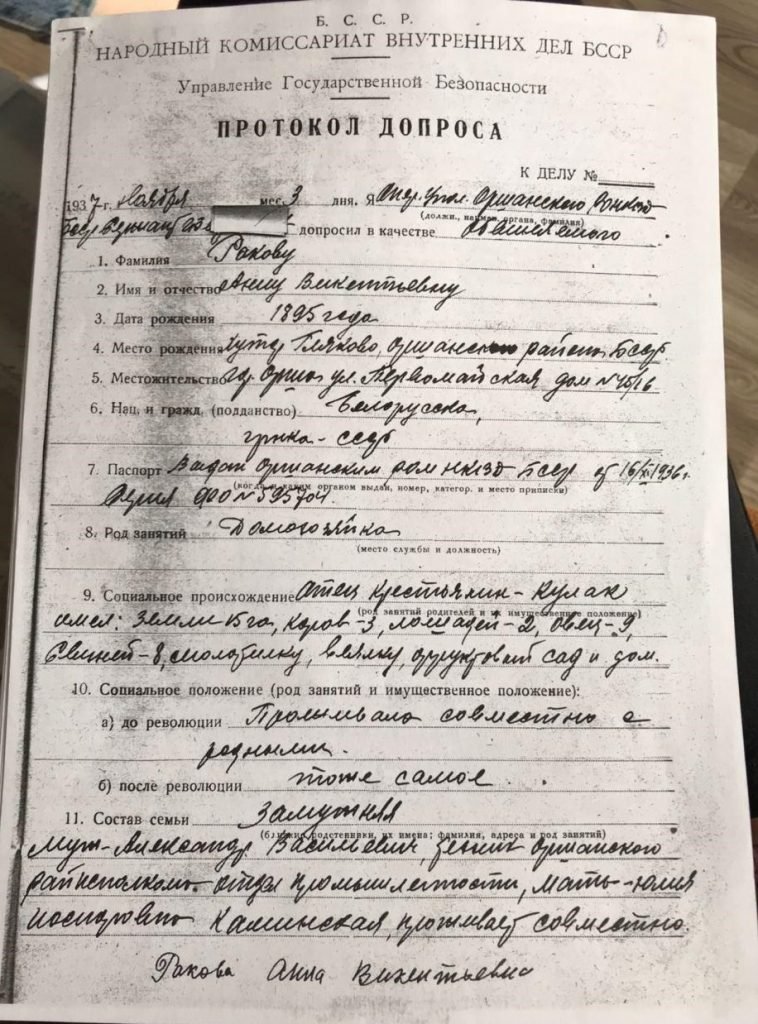 Б. С. С. Р.
НАРОДНЫЙ КОМИССАРИАТ ВНУТРЕННИХ ДЕЛ БССР
Управление Государственной Безопасности
ПРОТОКОЛ ДОПРОСА
К ДЕЛУ №
1937 г. ноября мес. 3 дня. Я Опер. Упол. Оршанского
(должн., наимен. органа, фамилия)
БССР допросил в качестве обвиняемого
1. Фамилия Ракову
2. Имя и отчество Анну Викентьевну
3. Дата рождения 1895 года
4. Место рождения хутор Гляково, Оршанского района БССР
5. Местожительство гор. Орша ул. Первомайская дом № 45/16
6. Нац. и гражд. (подданство) Белорусска,
гр-нка - СССР
7. Паспорт Выдан Оршанским ром НКВД БССР от 16/XI 1936 г.
(когда и каким органом выдан, номер, категор. и место приписки)
Серия № 595704
8. Род занятий Домохозяйка
(место службы и должность)
9. Социальное происхождение Отец крестьянин - кулак
(род занятий родителей и их имущественное положение)
имел: земли 15 га, коров - 3, лошадей - 2, овец - 9,
свиней - 8, молотилку, веялку, фруктовый сад и дом.
10. Социальное положение (род занятий и имущественное положение):
а) до революции Проживала совместно с
родными.
б) после революции тоже самое.
11. Состав семьи Замужняя
(близкие родственники, их имена; фамилия, адреса и род занятий)
Муж - Александр Васильевич, Оршанского
райисполкома отдел промышленности, мать - Юлия
Иосифовна Каминская, проживает совместно.
Ракова Анна Викентьевна